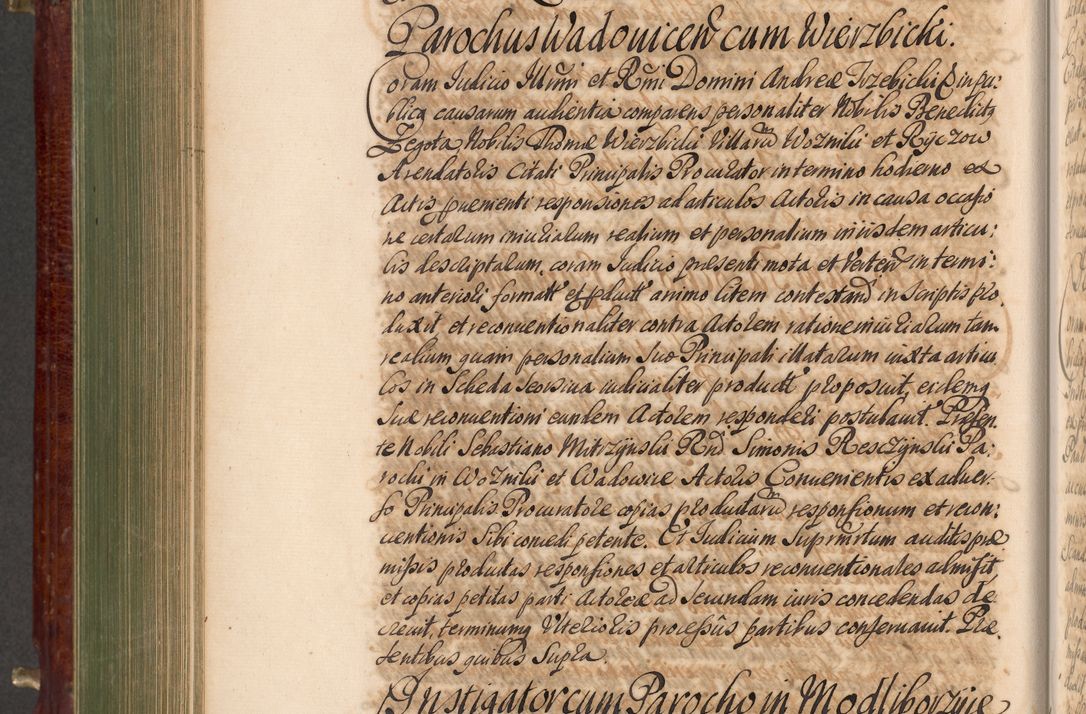 Parochus Wadouicen cum Wierzbicki.
Coram Iudicio Illmi et Rmi Domini Andreæ Trzebicki E in pu:
blica causarum audientia comparens personaliter Nobilis Benedictq
Zegota Nobilis Thomæ Wierzbicki Villarū Woznikii et Ryczow
Arendatoris Citati Principalis Procurator in termino hodierno ex
Actis responsiones ad articulos Actoris in causa occasio
ne certarum iniuriarum realium et personalium in iisdem articu:
lis descriptarum, coram Iudicio præsenti mota et Verten in termi:
no anteriori formatt et pductt animo litem contestand in Scriptis pro
duxit, et reconuentionaliter contra Actorem ratione iniuriarum tam
realium quam personalium Suo Principali illatarum iuxta articu
los in Scheda Seorsiua iudicialiter productt proposuit, eidemq
Suæ reconuentioni eundem Actorem responderi postulauit. Præsen
te Nobili Sebastiano Mitrzynskii Rnd Simonis Resczynskii Pa:
rochi in Woznikii et Wadowice Actoris Conuenientis ex aduer:
so Principalis Procuratore copias productarū responsionum et recon:
uentionis Sibi concedi petente. Et Iudicium Suprmrtum auditis præ
missis productas responsiones et articulos reconuentionales admisit
et copias petitas parti Actoreæ ad Secundam iuris concedendas de
creuit, terminumq Vlterioris processūs partibus conseruauit. Præ
sentibus quibus Supra.
Instigator cum Parocho in Modliborzyce